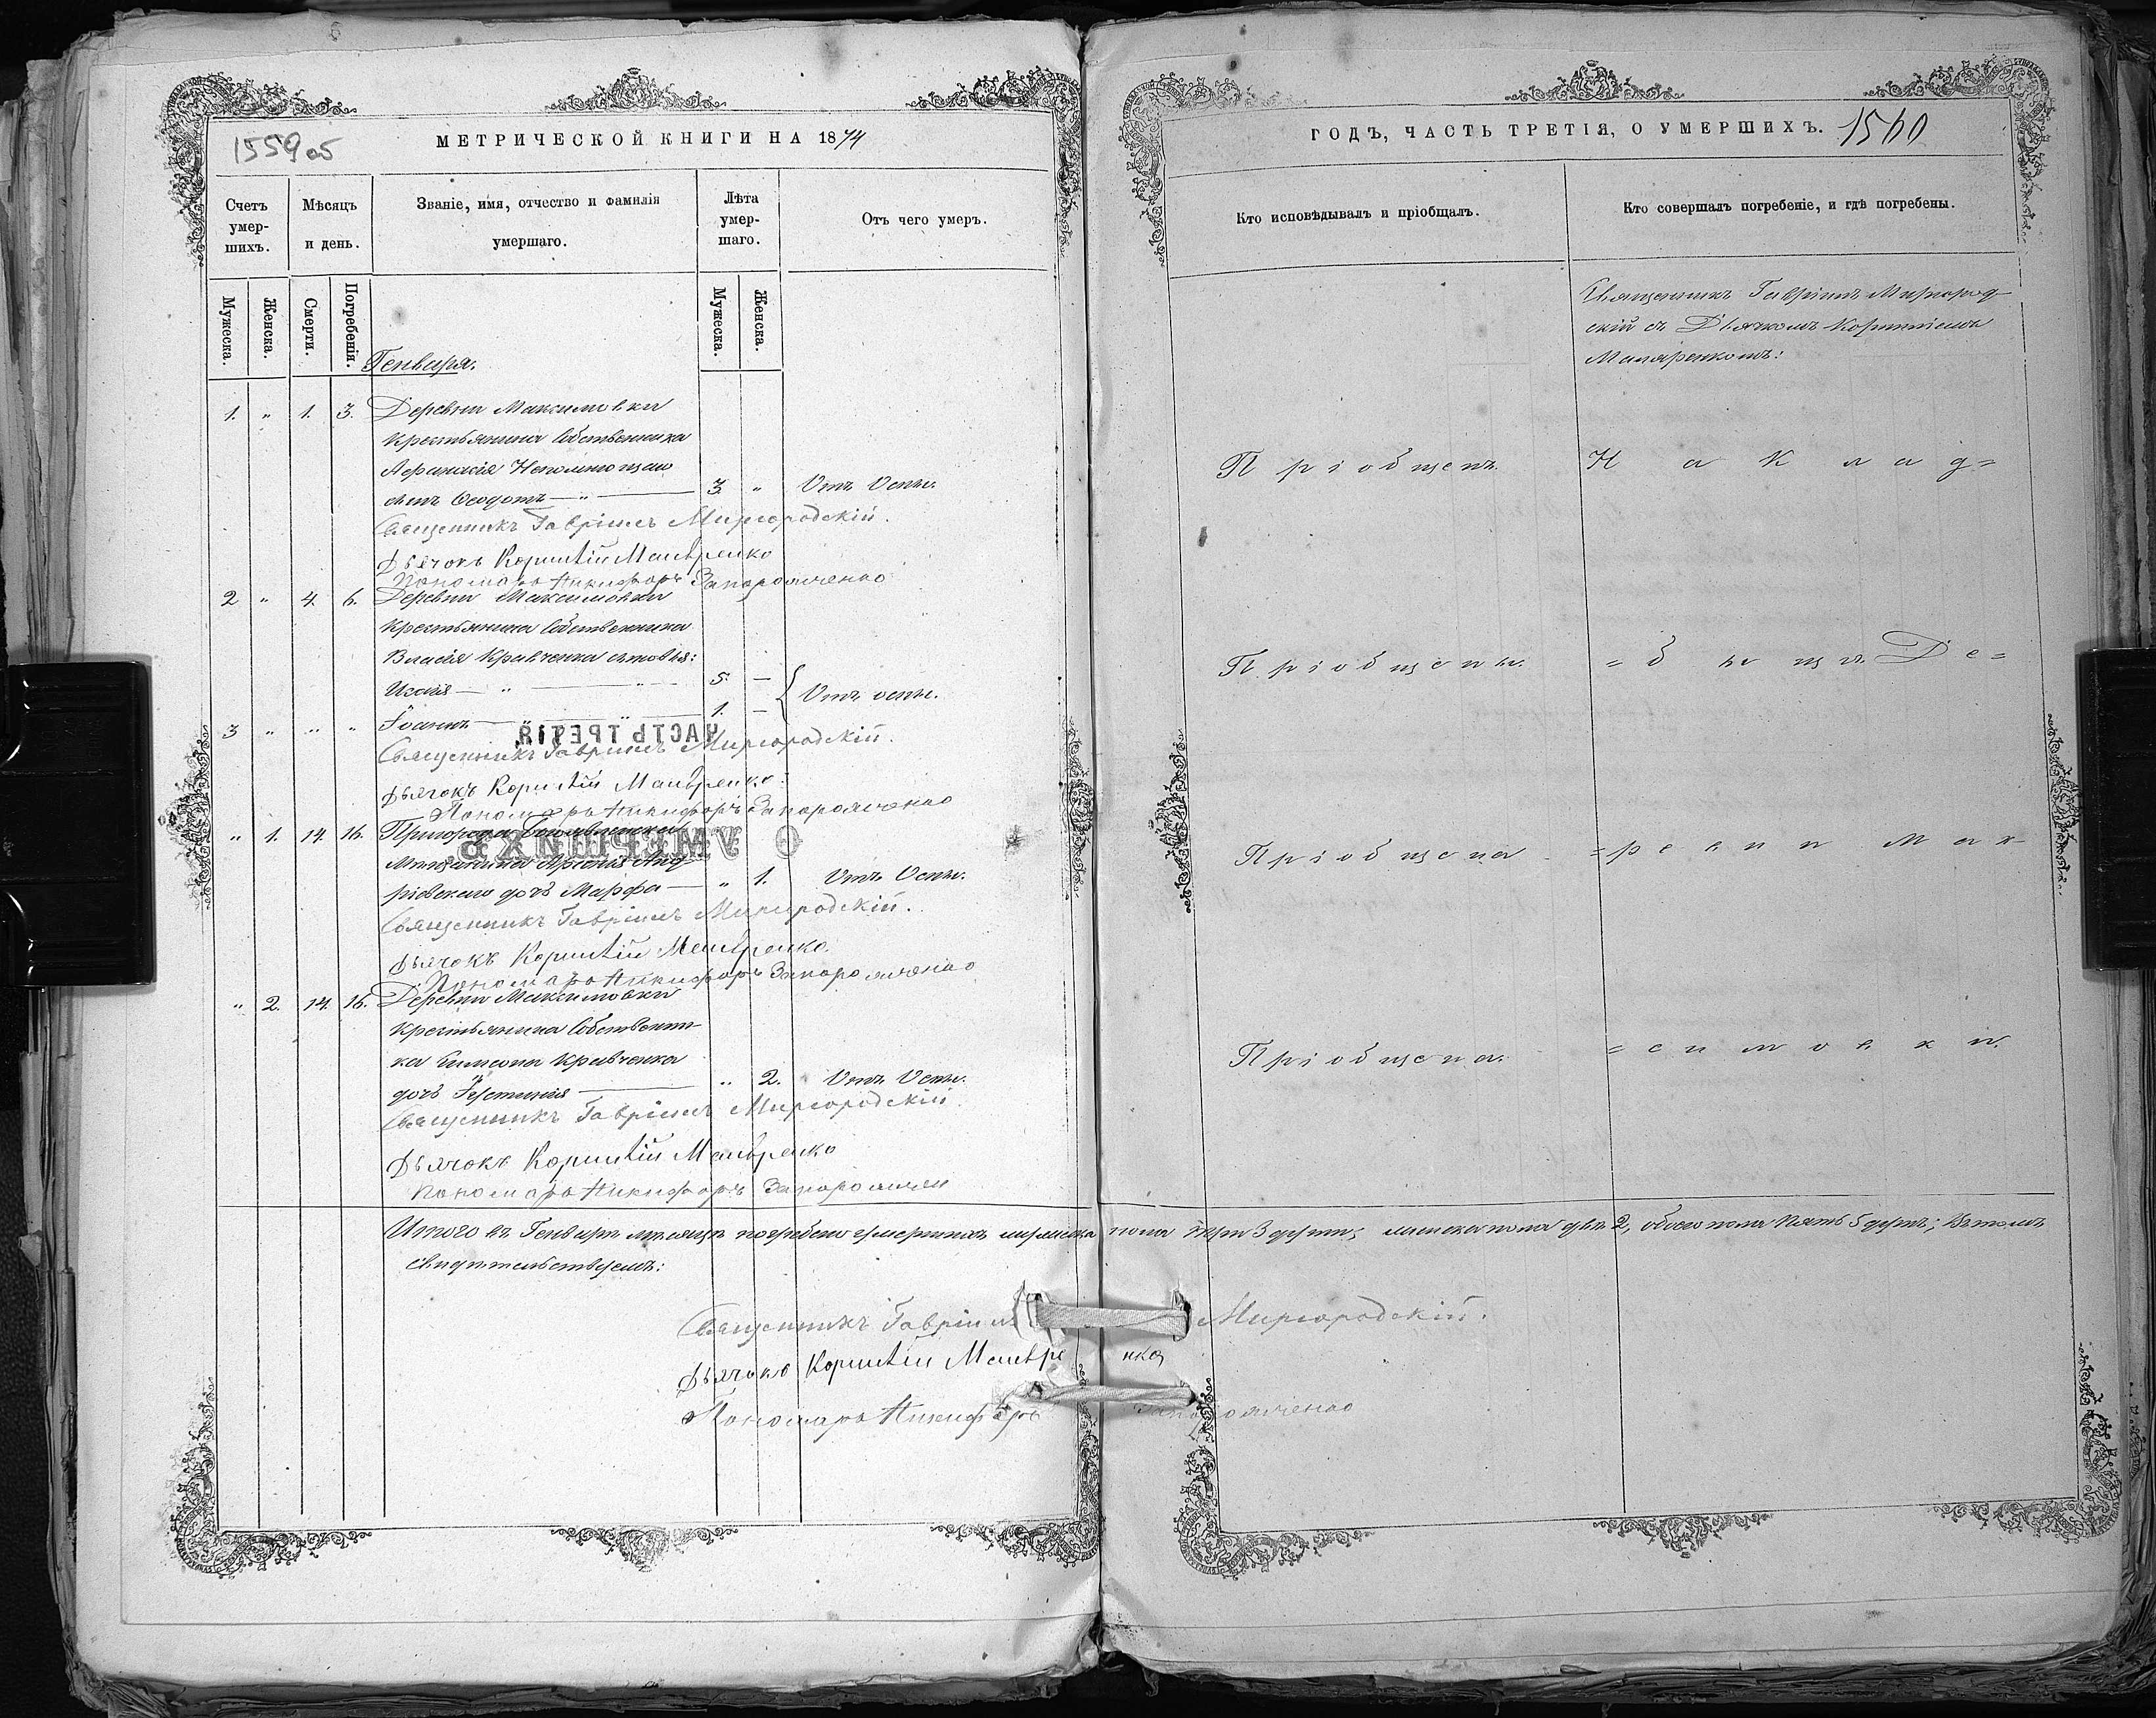 1559 об
МЕТРИЧЕСКОЙ КНИГИ НА 1874
Счетъ умер-шихъ.
Мѣсяцъ и день.
Званіе, имя, отчество и фамилія умершаго.
Лѣта умер-шаго.
Отъ чего умеръ.
Мужеска.
Женска.
Смерти.
Погребенія.
Мужеска.
Женска.
Генваря.
1. " 1. 3. Деревни Максимовки
крестьянина собственника
Афанасія Непомнющаго
сынъ Ѳеодотъ — " — 3. " Отъ Оспы.
Священникъ Гавріилъ Миргородскій.
Дьячокъ Корнилій
Пономарь Никифоръ Запорожченко
2 " 4. 6. Деревни Максимовки
крестьянина собственника
Власія Кравченка сыновья:
Исаія — " — " — 5. —
Отъ оспы.
3 " " " Іоаннъ — " — " — 1. —
ЧАСТЬ ТРЕТІЯ,
Священникъ Гавріилъ Миргородскій.
Дьячокъ Корнилій
Пономарь Никифоръ Запорожченко
О УМЕРШИХЪ.
" 1. 14. 16. Пригорода
Мѣщанина Анд-
ріевскаго дочь Марфа — " 1. Отъ Оспы.
Священникъ Гавріилъ Миргородскій.
Дьячокъ Корнилій
Пономарь Никифоръ Запорожченко
" 2. 14. 16. Деревни Максимовки
крестьянина собственни-
ка Симеона Кравченка
дочь Іустинія — " 2. Отъ Оспы.
Священникъ Гавріилъ Миргородскій
Дьячокъ Корнилій
Пономарь Никифоръ
Итого въ Генварѣ мѣсяцѣ погребено умершихъ мужеска пола три 3 души, женска пола двѣ 2, обоего пола пять 5 душъ; въ томъ
свидѣтельствуемъ:
Священникъ Гавріилъ Миргородскій.
Дьячокъ Корнилій
Пономарь Никифоръ Запорожченко
ГОДЪ, ЧАСТЬ ТРЕТІЯ, О УМЕРШИХЪ. 1560
Кто исповѣдывалъ и пріобщалъ.
Кто совершалъ погребеніе, и гдѣ погребены.
Священникъ Гавріилъ Миргород-
скій съ Дьячкомъ Корниліемъ
Пріобщенъ. На клад=
Пріобщены. =бищѣ Де=
Пріобщена =ревни Мак-
Пріобщена. =симовки.